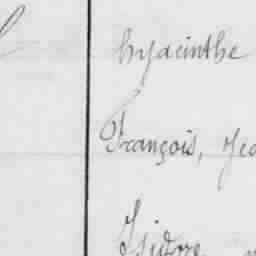 hyacinthe
François, Jea
Isidore